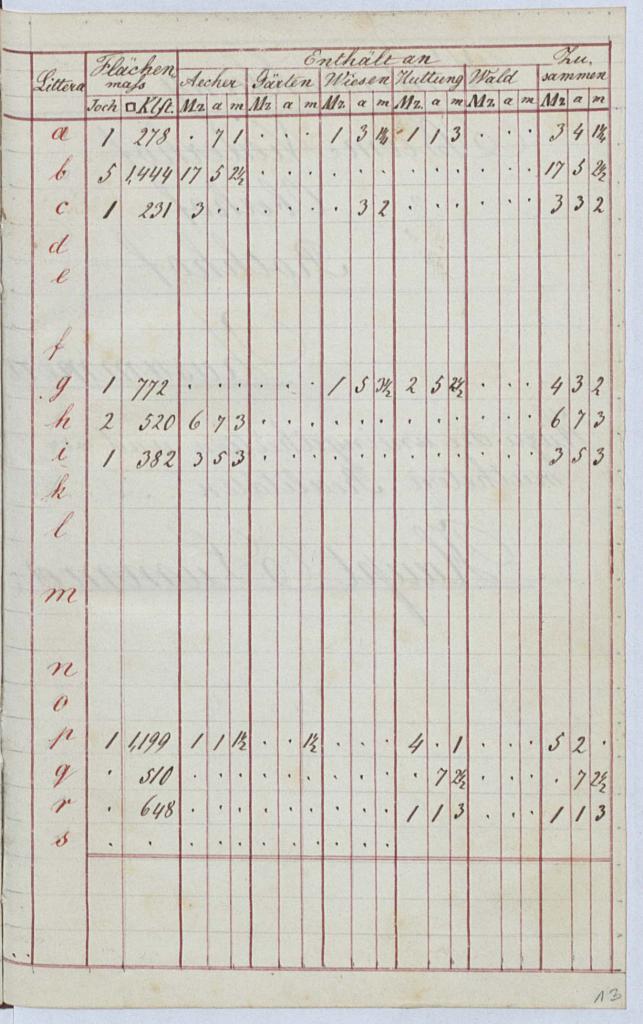 Enthält an
Littera Flächen mass Aecher Gärten Wiesen Huttung Wald Zu, sammen
Joch □ Klft. Mz. a m Mz. a m Mz. a m Mz. a m Mz. a m Mz a m
a 1 278 . 7 1 . . . 1 3 1 1 3 . . . 3 4
b 5 1,444 17 5 2½ . . . . . . . . . . . . 17 5 2½
c 1 231 3 . . . . . . 3 2 . . . . . . 3 3 2
d
e
f
g 1 772 . . . . . . 1 5 3½ 2 5 2½ . . . 4 3 2
h 2 520 6 7 3 . . . . . . . . . . . . 6 7 3
i 1 382 3 5 3 . . . . . . . . . . . . 3 5 3
k
l
m
n
o
p 1 1,199 1 1 1½ . . 1½ . . . 4 . 1 . . . 5 2 .
q . 510 . . . . . . . . . . 7 2½ . . . . 7 2½
r . 648 . . . . . . . . . 1 1 3 . . . 1 1 3
s . . . . . . . . . . .
13